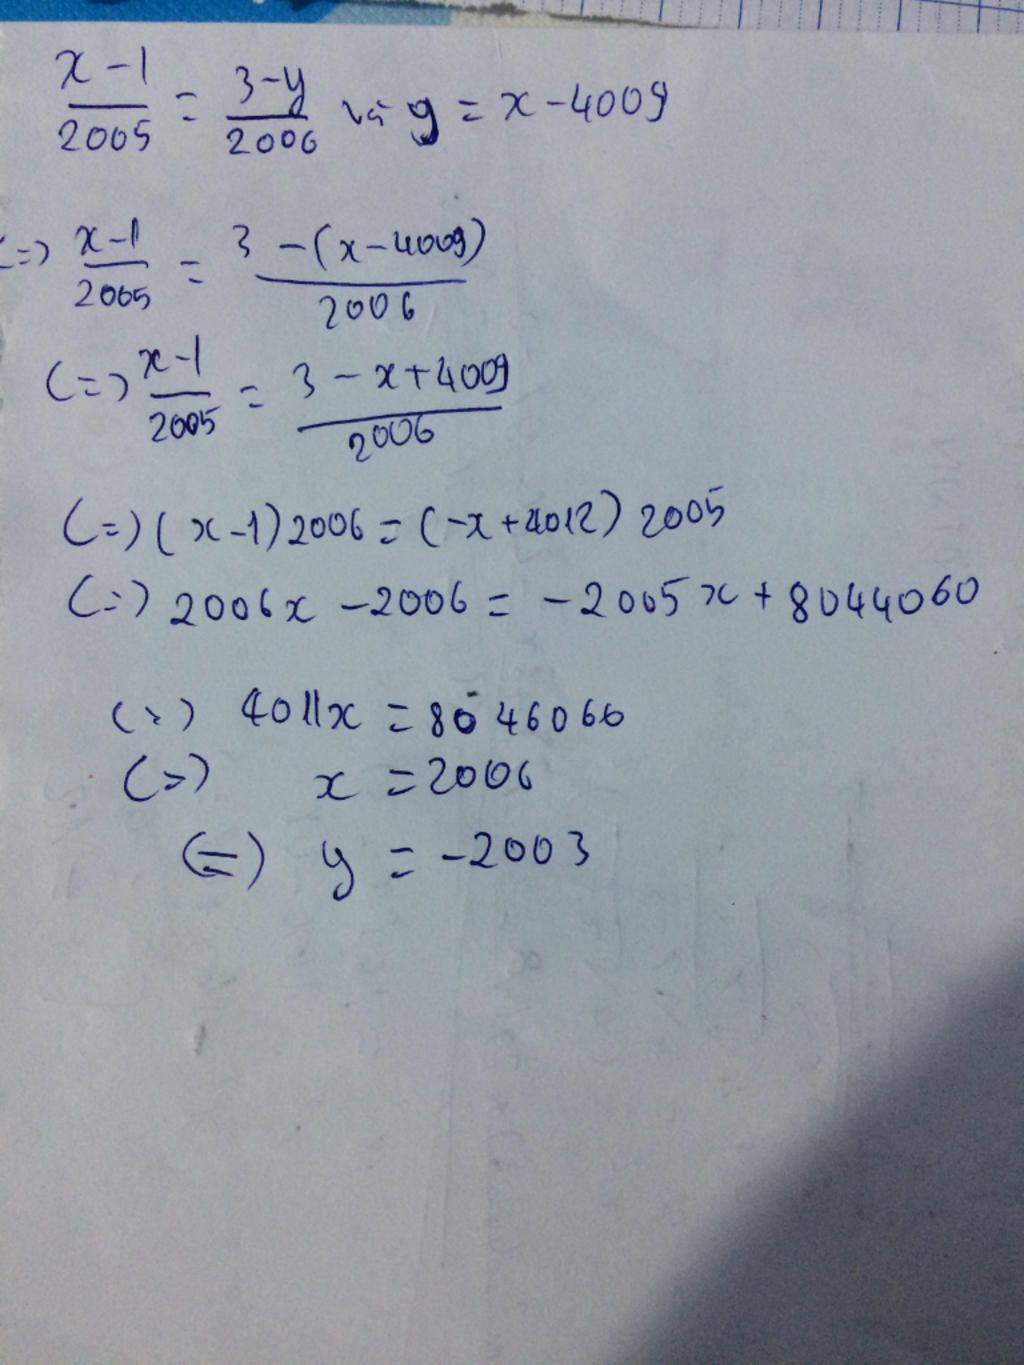 x-1/2005 = 3-y/2006 và y = x-4009
(=) x-1/2005 = 3-(x-4009)/2006
(=) x-1/2005 = 3-x+4009/2006
(=) (x-1)2006 = (-x+4012) 2005
(=) 2006x - 2006 = -2005x + 8044060
(=) 4011x = 8046066
(=) x = 2006
(=) y = -2003